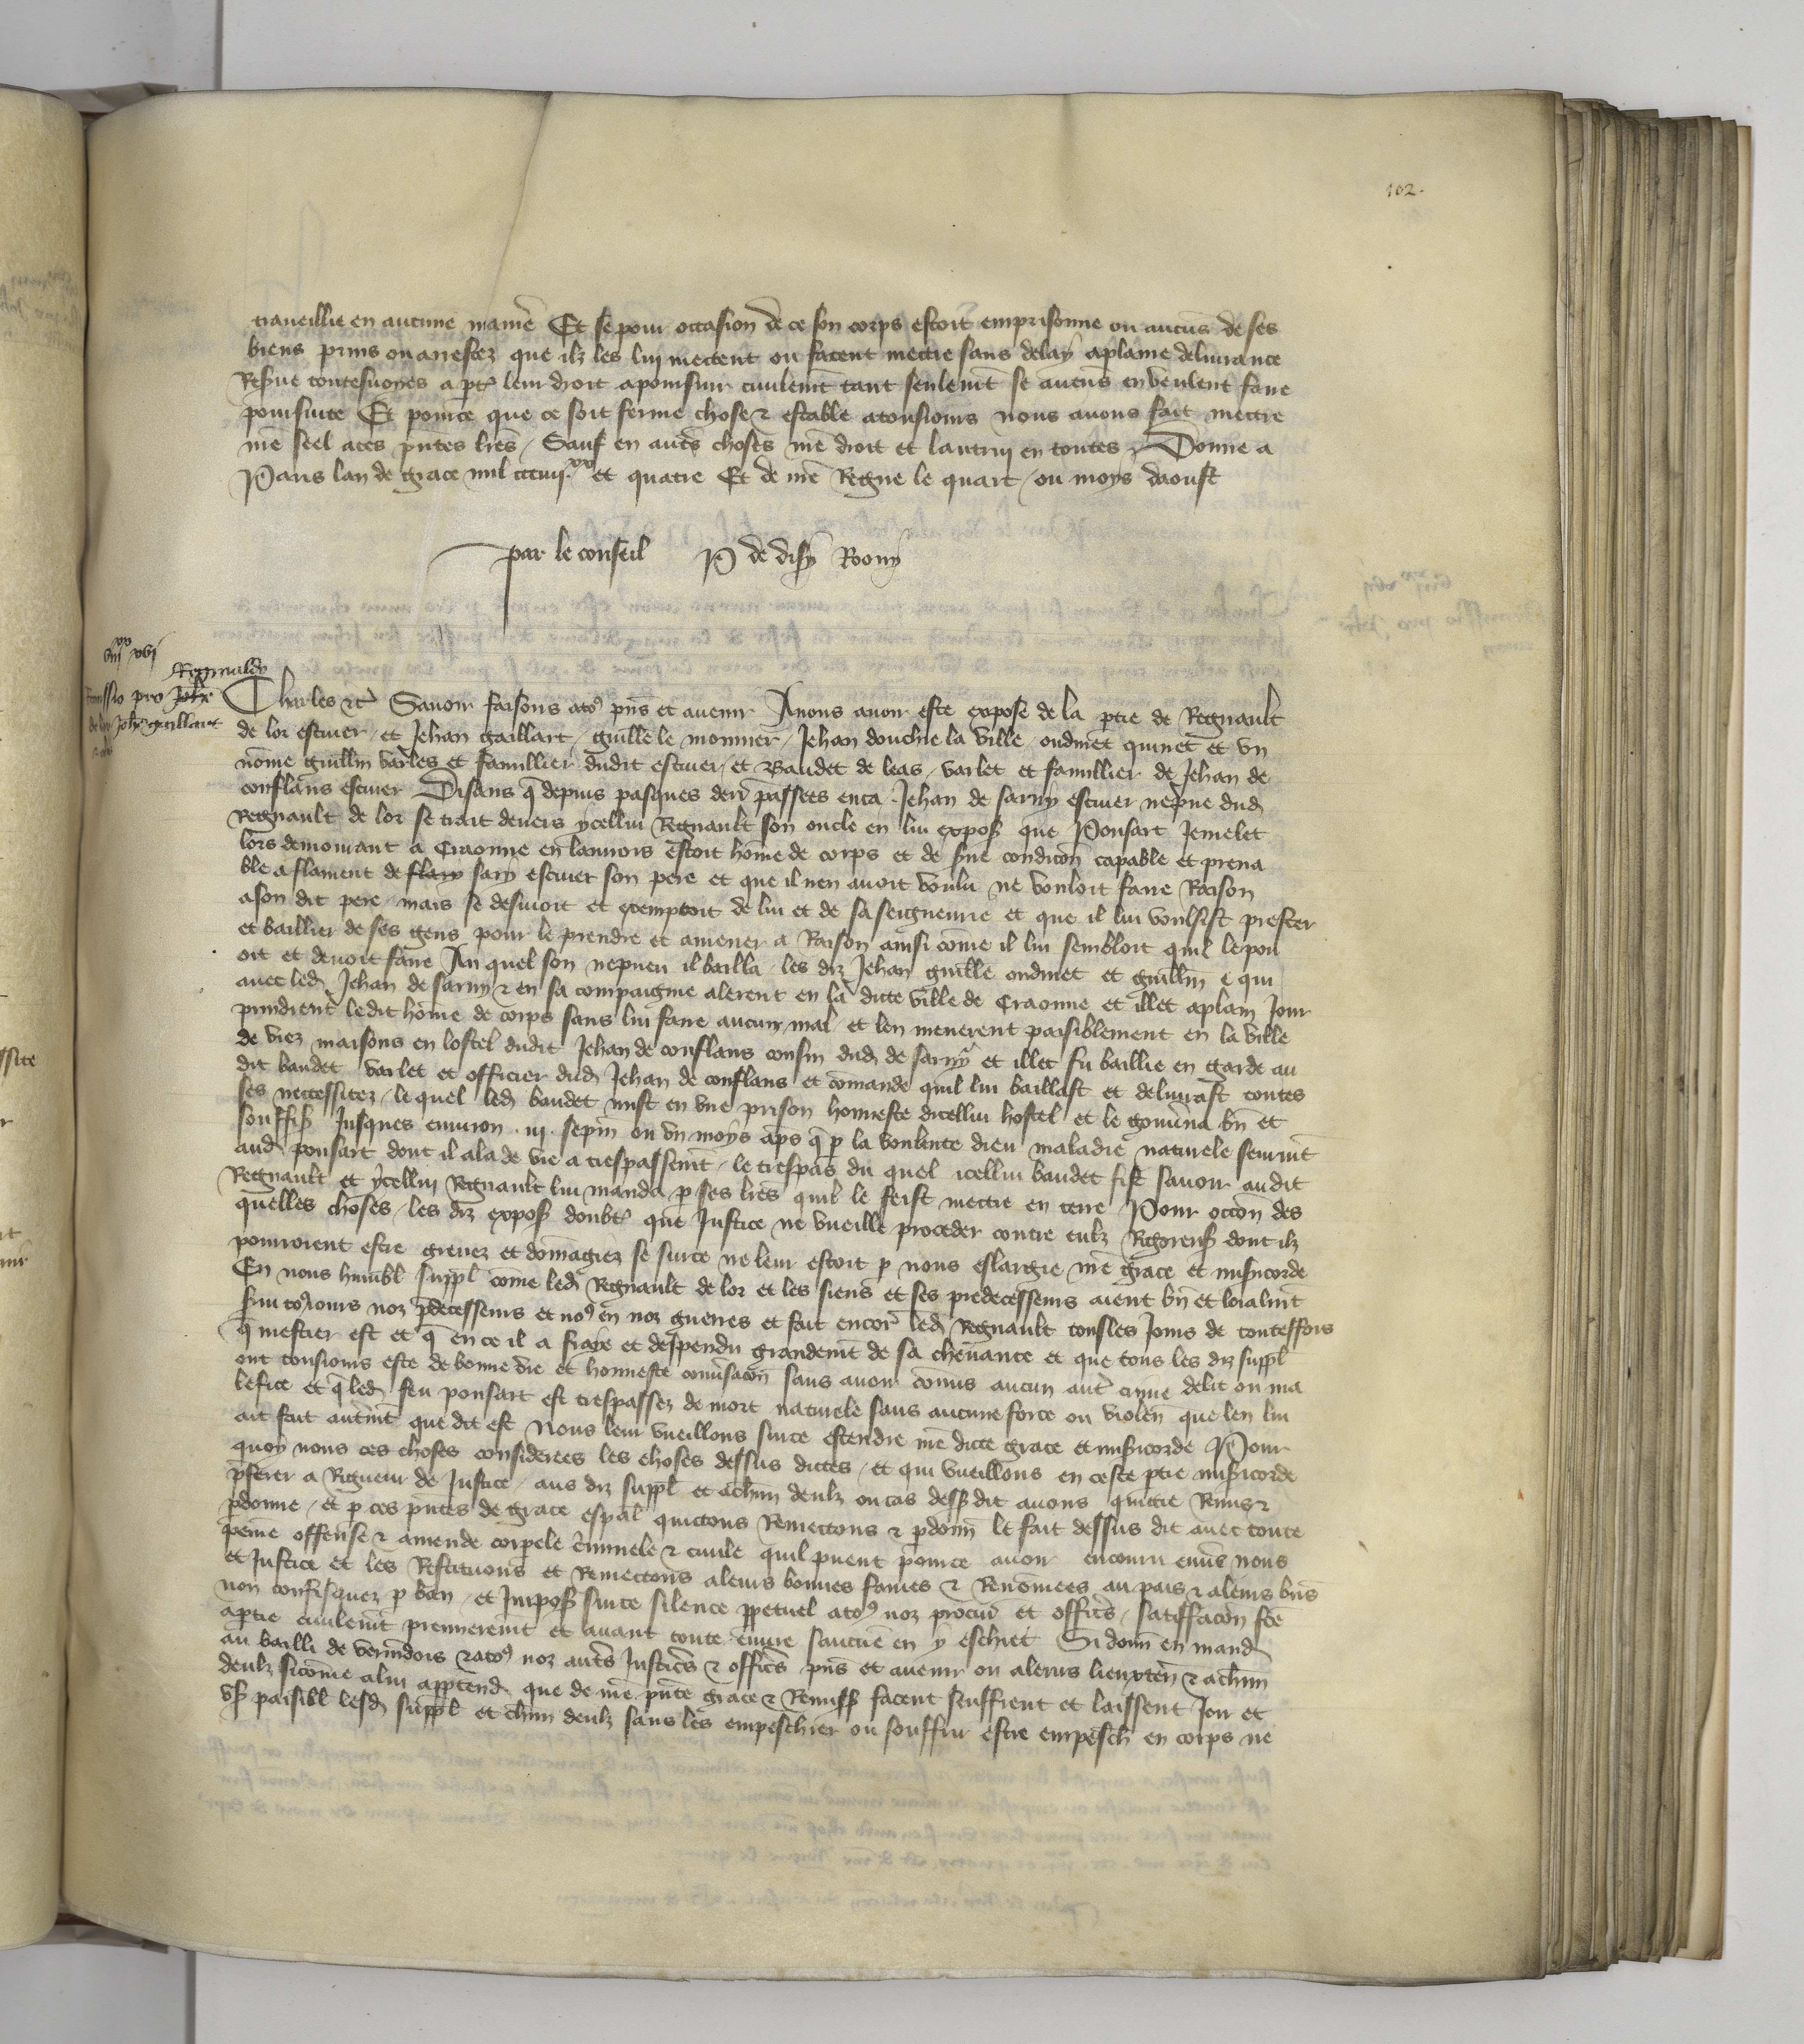 102.
traveillie en aucune manie Et se pour occasion de ce son corps estoit emprisonne ou aucus de ses
biens prins ou arrestez que ilz les lui mectent ou facent mectre sans delay a plaine delivrance
Resue toutesvoyes a pt leur droit a poursuir civilemt tant seulemt se aucus en veulent faire
poursuite Et pource que ce soit ferme chose & estable a tousiours nous avons fait mectre
nre seel a ces pntes lres / Sauf en autes choses nre droit et lautrui en toutes / Donne a
Paris lan de grace mil ccciiii xx et quatre Et de nre Regne le quart / ou moys daoust
par le conseil P de disy Rony
viii xx xvi
Regnaldo
Remissio pro Johe
de lor Johe gaillart
Charles &c Savoir faisons a tos pns et avenir A nous avoir este expose de la ptie de Regnault
de lor escuier / et Jehan gaillart / guille le monnier / Jehan douchie la ville / oudinet quinet et un
nome guillin varles et famillier dudit escuier / et Baudet de leas / varlet et famillier de Jehan de
conflans escuier Disans q depuis pasques derr passees enca Jehan de sarny escuier nepveu dud
Regnault de lor se trait devers ycellui Regnault son oncle en lui expos que Ponsart Jemelet
lors demourant a Craonne en lannois estoit home de corps et de sve condicon capable et prena
ble a flament de flary sary escuier son pere et que il nen avoit voulu ne vouloit faire Raison
a son dit pere mais se desavoit et exemptoit de lui et de sa seigneurie et que il lui voulsist prester
et baillier de ses gens pour le prendre et amener a Raison ainsi come il lui sembloit quil le pou
oit et devoit faire Au quel son nepveu il bailla les diz Jehan guille oudinet et guillin e qui
avec led Jehan de sarny & en sa compaignie alerent en la dicte ville de Craonne et illec a plain Jour
prindrent ledit home de corps sans lui faire aucun mal et len menerent paisiblement en la ville
de viez maisons en lostel dudit Jehan de conflans cousin dud de sarny et illec fu baillie en garde au
dit baudet varlet et officier dud Jehan de conflans et comande quil lui baillast et delivrast toutes
ses neccessitez / le quel led baudet mist en une prison honneste dicellui hostel et le gouvna bn et
souffis Jusques environ .iii. sepm ou un moys aps q p la voulente dieu maladie naturele seurvint
aud ponsart dont il ala de vie a trespassemt / le trespas du quel icellui baudet fist savoir audit
Regnault et ycellui Regnault lui manda p ses lres quil le feist mectre en terre Pour occon des
quelles choses / les diz expos doubt que Justice ne vueille proceder contre eulz Rigoreus dont ilz
pourroient estre grevez et domagiez se sur ce ne leur estoit p nous eslargie nre grace et misicorde
En nous humbl suppl come led Regnault de lor et les siens et ses predecesseurs aient bn et loialmt
svi tosjours noz pdecesseurs et nos en noz guerres et fait encor led Regnault tous les Jours de toutesfois
q mestier est et q en ce il a fraye et despendu grandemt de sa chevance et que tous les diz suppl
ont tousiours este de bonne vie et honneste convsacon sans avoir comis aucun aut crime delit ou ma
lefice et q led feu ponsart est trespassez de mort naturele sans aucune force ou violen que len lui
ait fait autremt que dit est Nous leur vueillons sur ce estendre nre dicte grace et misicorde Pour
quoy nous ces choses considerees les choses dessus dictes / et qui vueillons en ceste ptie misicorde
pferer a Rigueur de Justice / aus diz suppl et achun deulz ou cas dess dit avons quictie Remis &
pdonne / et p ces pntes de grace espal quictons Remectons & pdonn le fait dessus dit avec toute
peine offense & amende corpele criminele & civile quil puent pour ce avoir encouru envs nous
et Justice et les Restituons et Remectons a leurs bonnes fames & Renomees au pais & a leurs bns
non confisquez p ban / et Impos sur ce silence ppetuel a tos noz procur et offics / satiffacon fce
a ptie civilemt premieremt et avant toute euvre sauctue en y eschiet Si donn en mand
au bailli de vermdois & a tos noz auts Justics & offics pns et avenir ou a leurs lieuxten & achun
deulz sicome a lui apptend que de nre pnte grace & Remiss facent seuffrent et laissent Jou et
us paisibl lesd suppl et chun deulz sans les empeschier ou souffrir estre empesch en corps ne